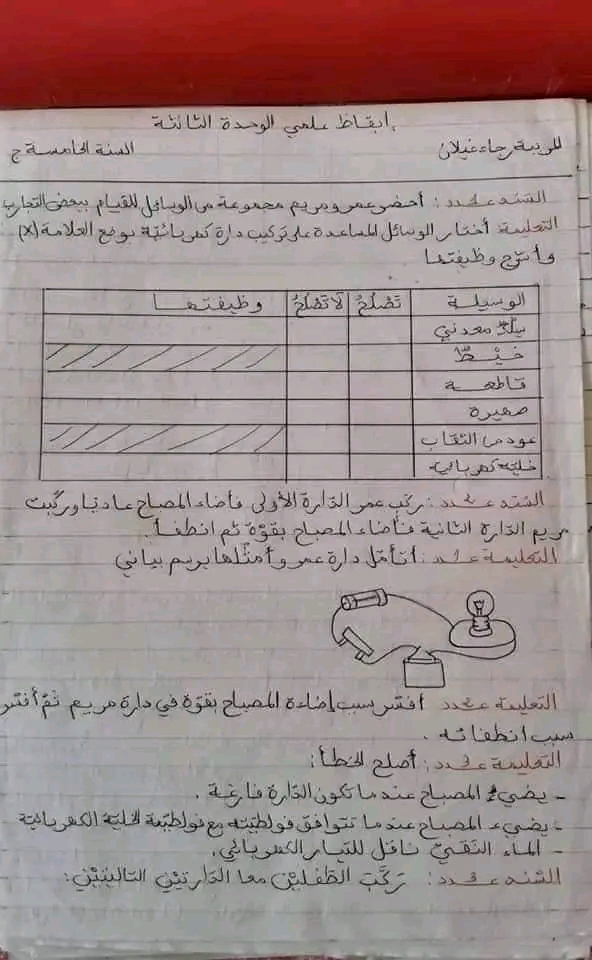 إيقاظ علمي الوحدة الثالثة
المربية رجاء غيلان
السنة الخامسة ج
السند عـــدد : أحضر عمر ومريم مجموعة من الوسائل للقيام ببعض التجارب
التعليمة: أختار الوسائل المساعدة على تركيب دارة كهربائيّة بوضع العلامة (x)
وأشرح وظيفتها
الوسيلة تَصْلُحُ لَا تَصْلُحُ وظيفتـهـا
سلك معدني
خَيْـطٌ
قاطعـة
صهيرة
عود من الثقاب
خليّة كهربائية
السّند عـــدد : ركّب عمر الدّارة الأولى فأضاء المصباح عاديا وركّبت
مريم الدّارة الثانية فأضاء المصباح بقوّة ثم انطفـأ.
التعليمة عـدد : أتأمّل دارة عمر وأمثّلها برسم بياني
التعليمة عـدد أفسّر سبب إضاءة المصباح بقوّة في دارة مريم ثمّ أفسّر
سبب انطفائه .
التعليمة عـدد : أصلح الخطأ :
- يضيء المصباح عندما تكون الدّارة فارغة .
- يضيء المصباح عندما تتوافق فولطيّته مع فولطيّة الخليّة الكهربائيّة
- الماء النّقيّ ناقل للتيار الكهربائي.
السّند عـــدد : ركّب الطّفليْن معا الدّارتيْن التاليتيْن: